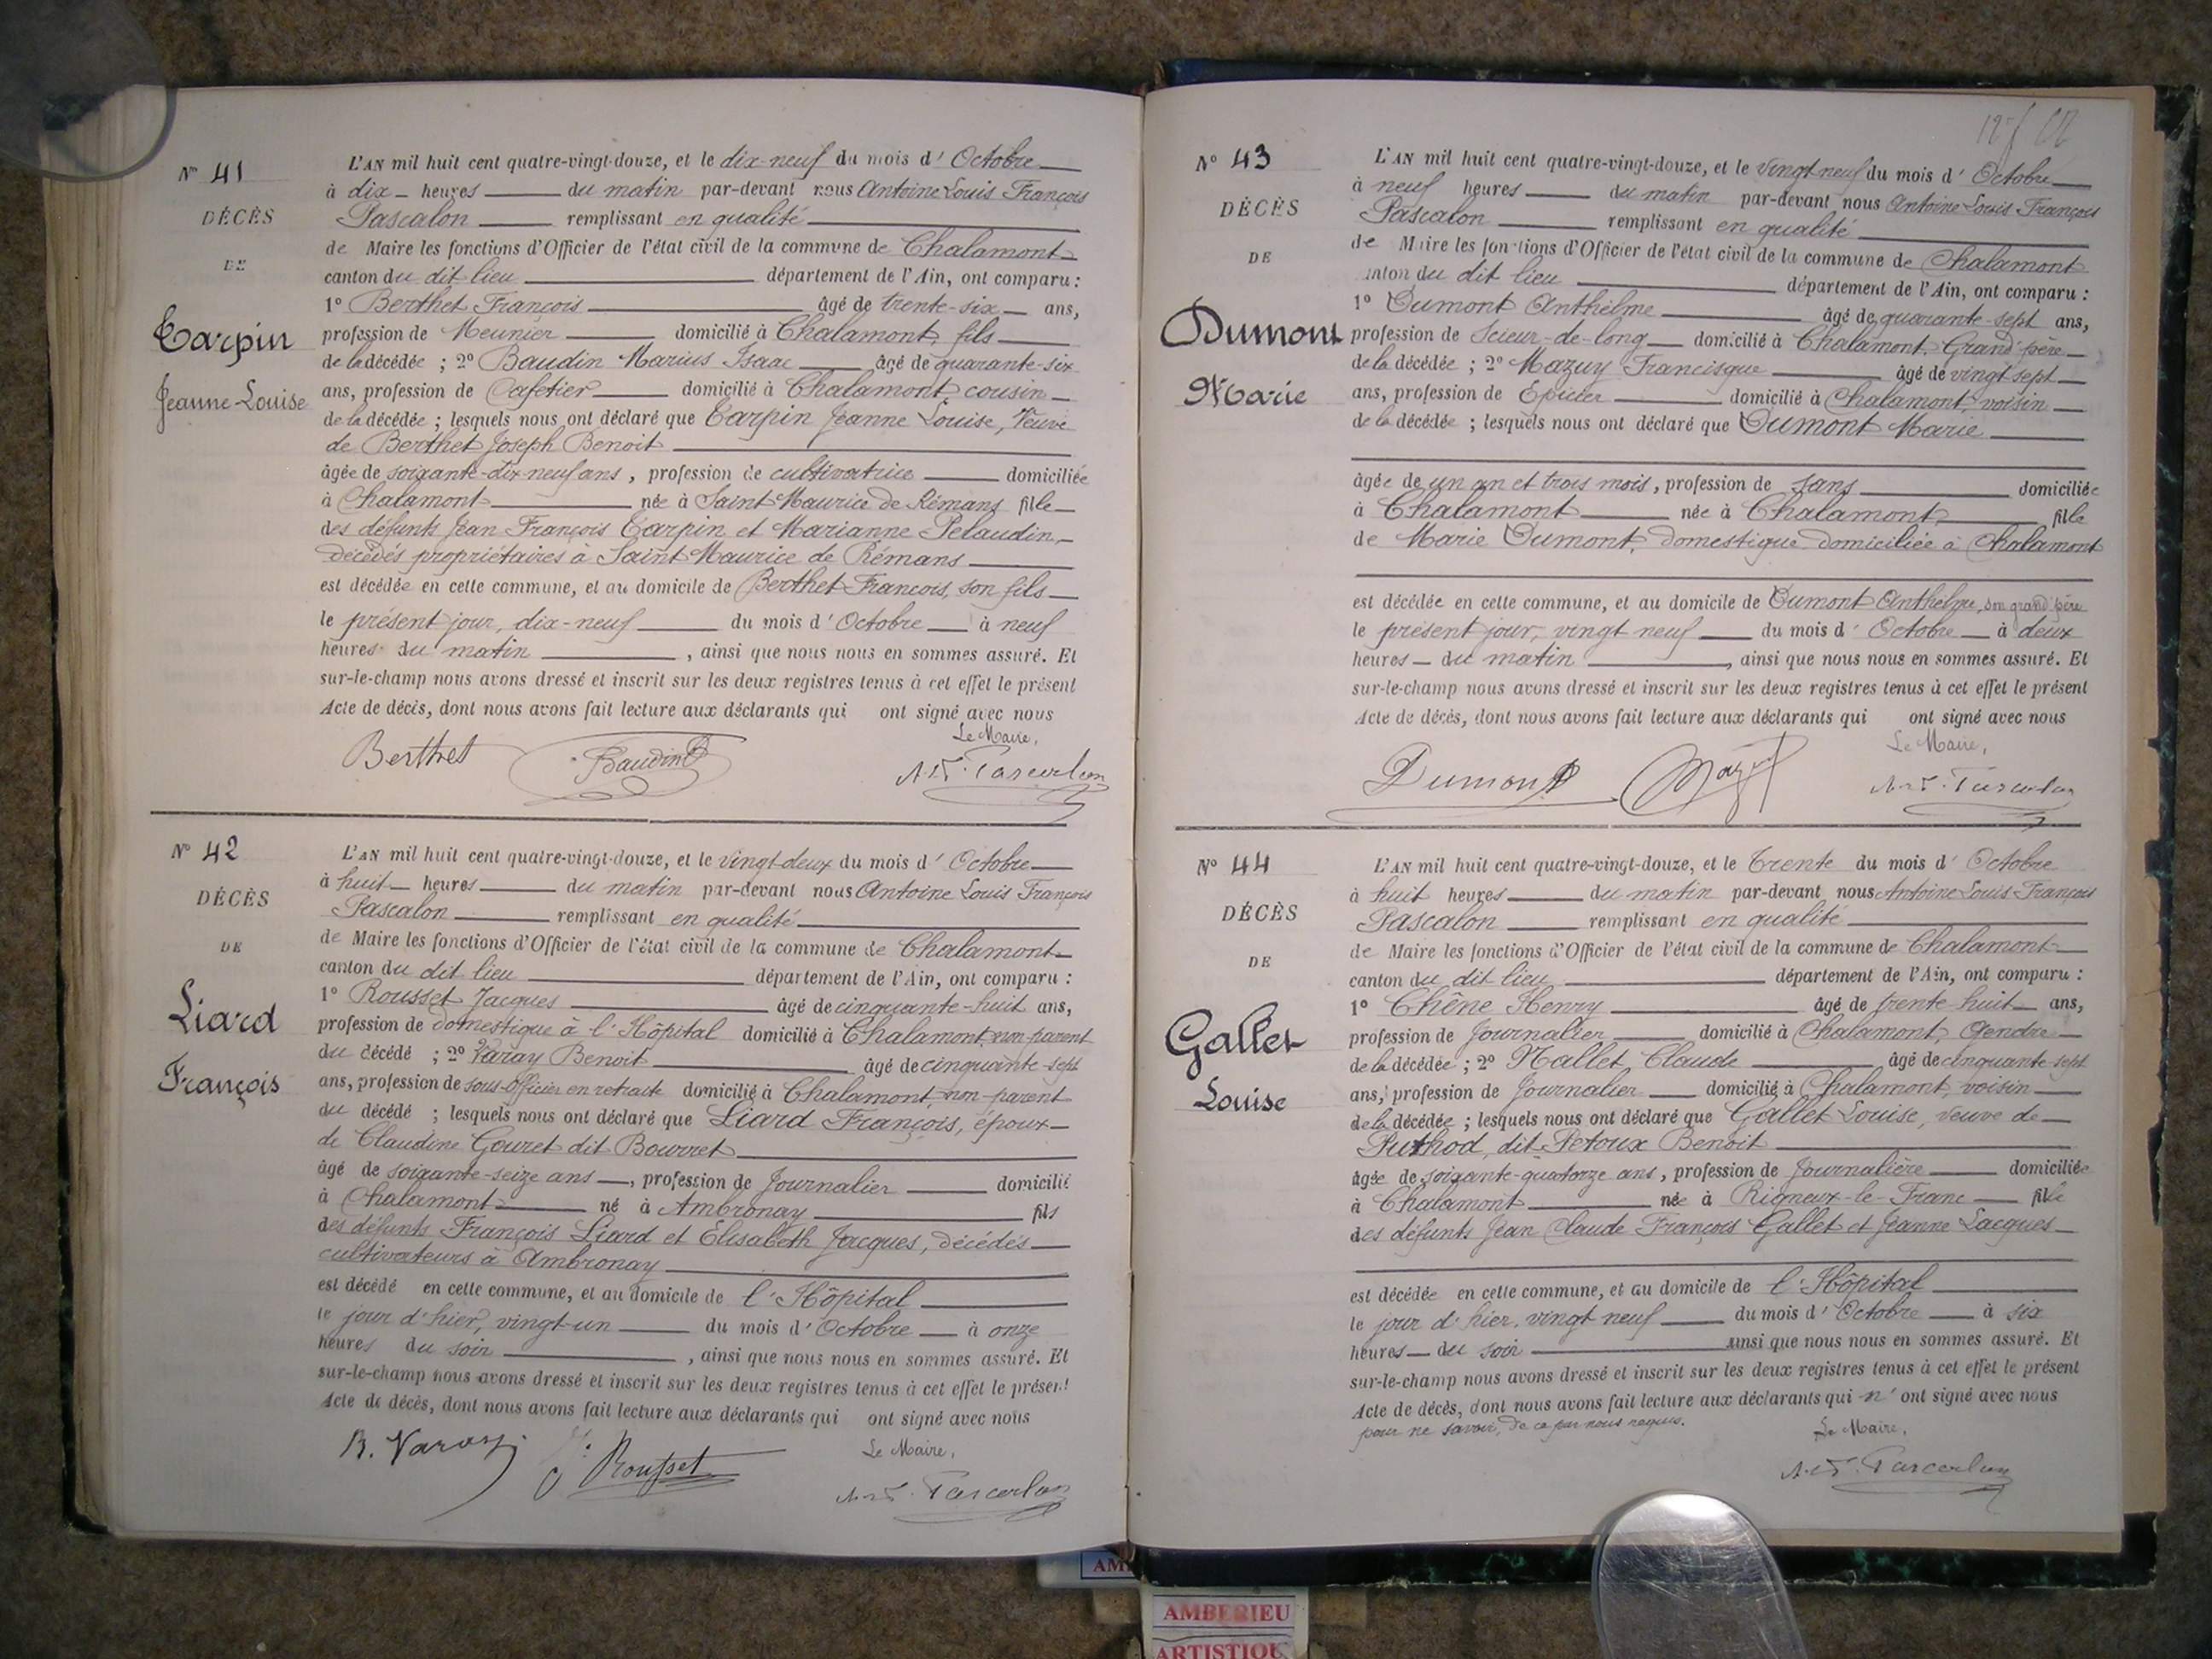 N° 41
DÉCÈS
DE
Carpin
Jeanne-Louise
L'AN mil huit cent quatre-vingt-douze, et le dix-neuf du mois d'Octobre
à dix heures du matin par-devant nous Antoine Louis François
Pascalon remplissant en qualité
de Maire les fonctions d'Officier de l'état civil de la commune de Chalamont
canton du dit lieu département de l'Ain, ont comparu :
1° Berthet François âgé de trente-six ans,
profession de Meunier domicilié à Chalamont, fils
de la décédée ; 2° Baudin Marius Isaac âgé de quarante-six
ans, profession de Cafetier domicilié à Chalamont cousin
de la décédée ; lesquels nous ont déclaré que Carpin Jeanne Louise, Veuve
de Berthet Joseph Benoit
âgée de soixante-dix-neuf ans, profession de cultivatrice domiciliée
à Chalamont née à Saint Maurice de Rémans fille
des défunts Jean François Carpin et Marianne Pelaudin,
décédés propriétaires à Saint Maurice de Rémans
est décédée en cette commune, et au domicile de Berthet François, son fils
le présent jour, dix-neuf du mois d'Octobre à neuf
heures du matin , ainsi que nous nous en sommes assuré. Et
sur-le-champ nous avons dressé et inscrit sur les deux registres tenus à cet effet le présent
Acte de décès, dont nous avons fait lecture aux déclarants qui ont signé avec nous
Le Maire,
Berthet Baudin A.L.F. Pascalon
N° 42
DÉCÈS
DE
Liard
François
L'AN mil huit cent quatre-vingt-douze, et le vingt-deux du mois d'Octobre
à huit heures du matin par-devant nous Antoine Louis François
Pascalon remplissant en qualité
de Maire les fonctions d'Officier de l'état civil de la commune de Chalamont
canton du dit lieu département de l'Ain, ont comparu :
1° Rousset Jacques âgé de cinquante-huit ans,
profession de domestique à l'Hôpital domicilié à Chalamont, non parent
du décédé ; 2° Varay Benoit âgé de cinquante-sept
ans, profession de sous-officier en retraite domicilié à Chalamont, non-parent
du décédé ; lesquels nous ont déclaré que Liard François, époux
de Claudine Gouret dit Bouvret
âgé de soixante-seize ans, profession de Journalier domicilié
à Chalamont né à Ambronay fils
des défunts François Liard et Elisabeth Jacques, décédés
cultivateurs à Ambronay
est décédé en cette commune, et au domicile de l'Hôpital
le jour d'hier, vingt-un du mois d'Octobre à onze
heures du soir , ainsi que nous nous en sommes assuré. Et
sur-le-champ nous avons dressé et inscrit sur les deux registres tenus à cet effet le présent
Acte de décès, dont nous avons fait lecture aux déclarants qui ont signé avec nous
Le Maire,
B. Varay J. Rousset A.L.F. Pascalon
N° 43
DÉCÈS
DE
Dumont
Marie
L'AN mil huit cent quatre-vingt-douze, et le vingt neuf du mois d'Octobre
à neuf heures du matin par-devant nous Antoine Louis François
Pascalon remplissant en qualité
de Maire les fonctions d'Officier de l'état civil de la commune de Chalamont
canton du dit lieu département de l'Ain, ont comparu :
1° Dumont Anthelme âgé de quarante-sept ans,
profession de Scieur-de-long domicilié à Chalamont, Grand'père
de la décédée ; 2° Mazuy Francisque âgé de vingt sept
ans, profession de Epicier domicilié à Chalamont, voisin
de la décédée ; lesquels nous ont déclaré que Dumont Marie
âgée de un an et trois mois, profession de sans domiciliée
à Chalamont née à Chalamont, fille
de Marie Dumont, domestique domiciliée à Chalamont
est décédée en cette commune, et au domicile de Dumont Anthelme, son grand'père
le présent jour, vingt neuf du mois d'Octobre à deux
heures du matin , ainsi que nous nous en sommes assuré. Et
sur-le-champ nous avons dressé et inscrit sur les deux registres tenus à cet effet le présent
Acte de décès, dont nous avons fait lecture aux déclarants qui ont signé avec nous
Le Maire,
Dumont Mazuy A.L.F. Pascalon
N° 44
DÉCÈS
DE
Gallet
Louise
L'AN mil huit cent quatre-vingt-douze, et le Trente du mois d'Octobre
à huit heures du matin par-devant nous Antoine Louis François
Pascalon remplissant en qualité
de Maire les fonctions d'Officier de l'état civil de la commune de Chalamont
canton du dit lieu département de l'Ain, ont comparu :
1° Chêne Henry âgé de trente-huit ans,
profession de Journalier domicilié à Chalamont, Gendre
de la décédée ; 2° Mallet Claude âgé de cinquante-sept
ans, profession de Journalier domicilié à Chalamont, voisin
de la décédée ; lesquels nous ont déclaré que Gallet Louise, veuve de
Puthod, dit Petoux Benoit
âgée de soixante-quatorze ans, profession de Journalière domiciliée
à Chalamont née à Rigneux-le-Franc fille
des défunts Jean Claude François Gallet et Jeanne Jacques
est décédée en cette commune, et au domicile de l'Hôpital
le jour d'hier, vingt neuf du mois d'Octobre à six
heures du soir ainsi que nous nous en sommes assuré. Et
sur-le-champ nous avons dressé et inscrit sur les deux registres tenus à cet effet le présent
Acte de décès, dont nous avons fait lecture aux déclarants qui n'ont signé avec nous
pour ne savoir, de ce par nous requis.
Le Maire,
A.L.F. Pascalon
AMBERIEU